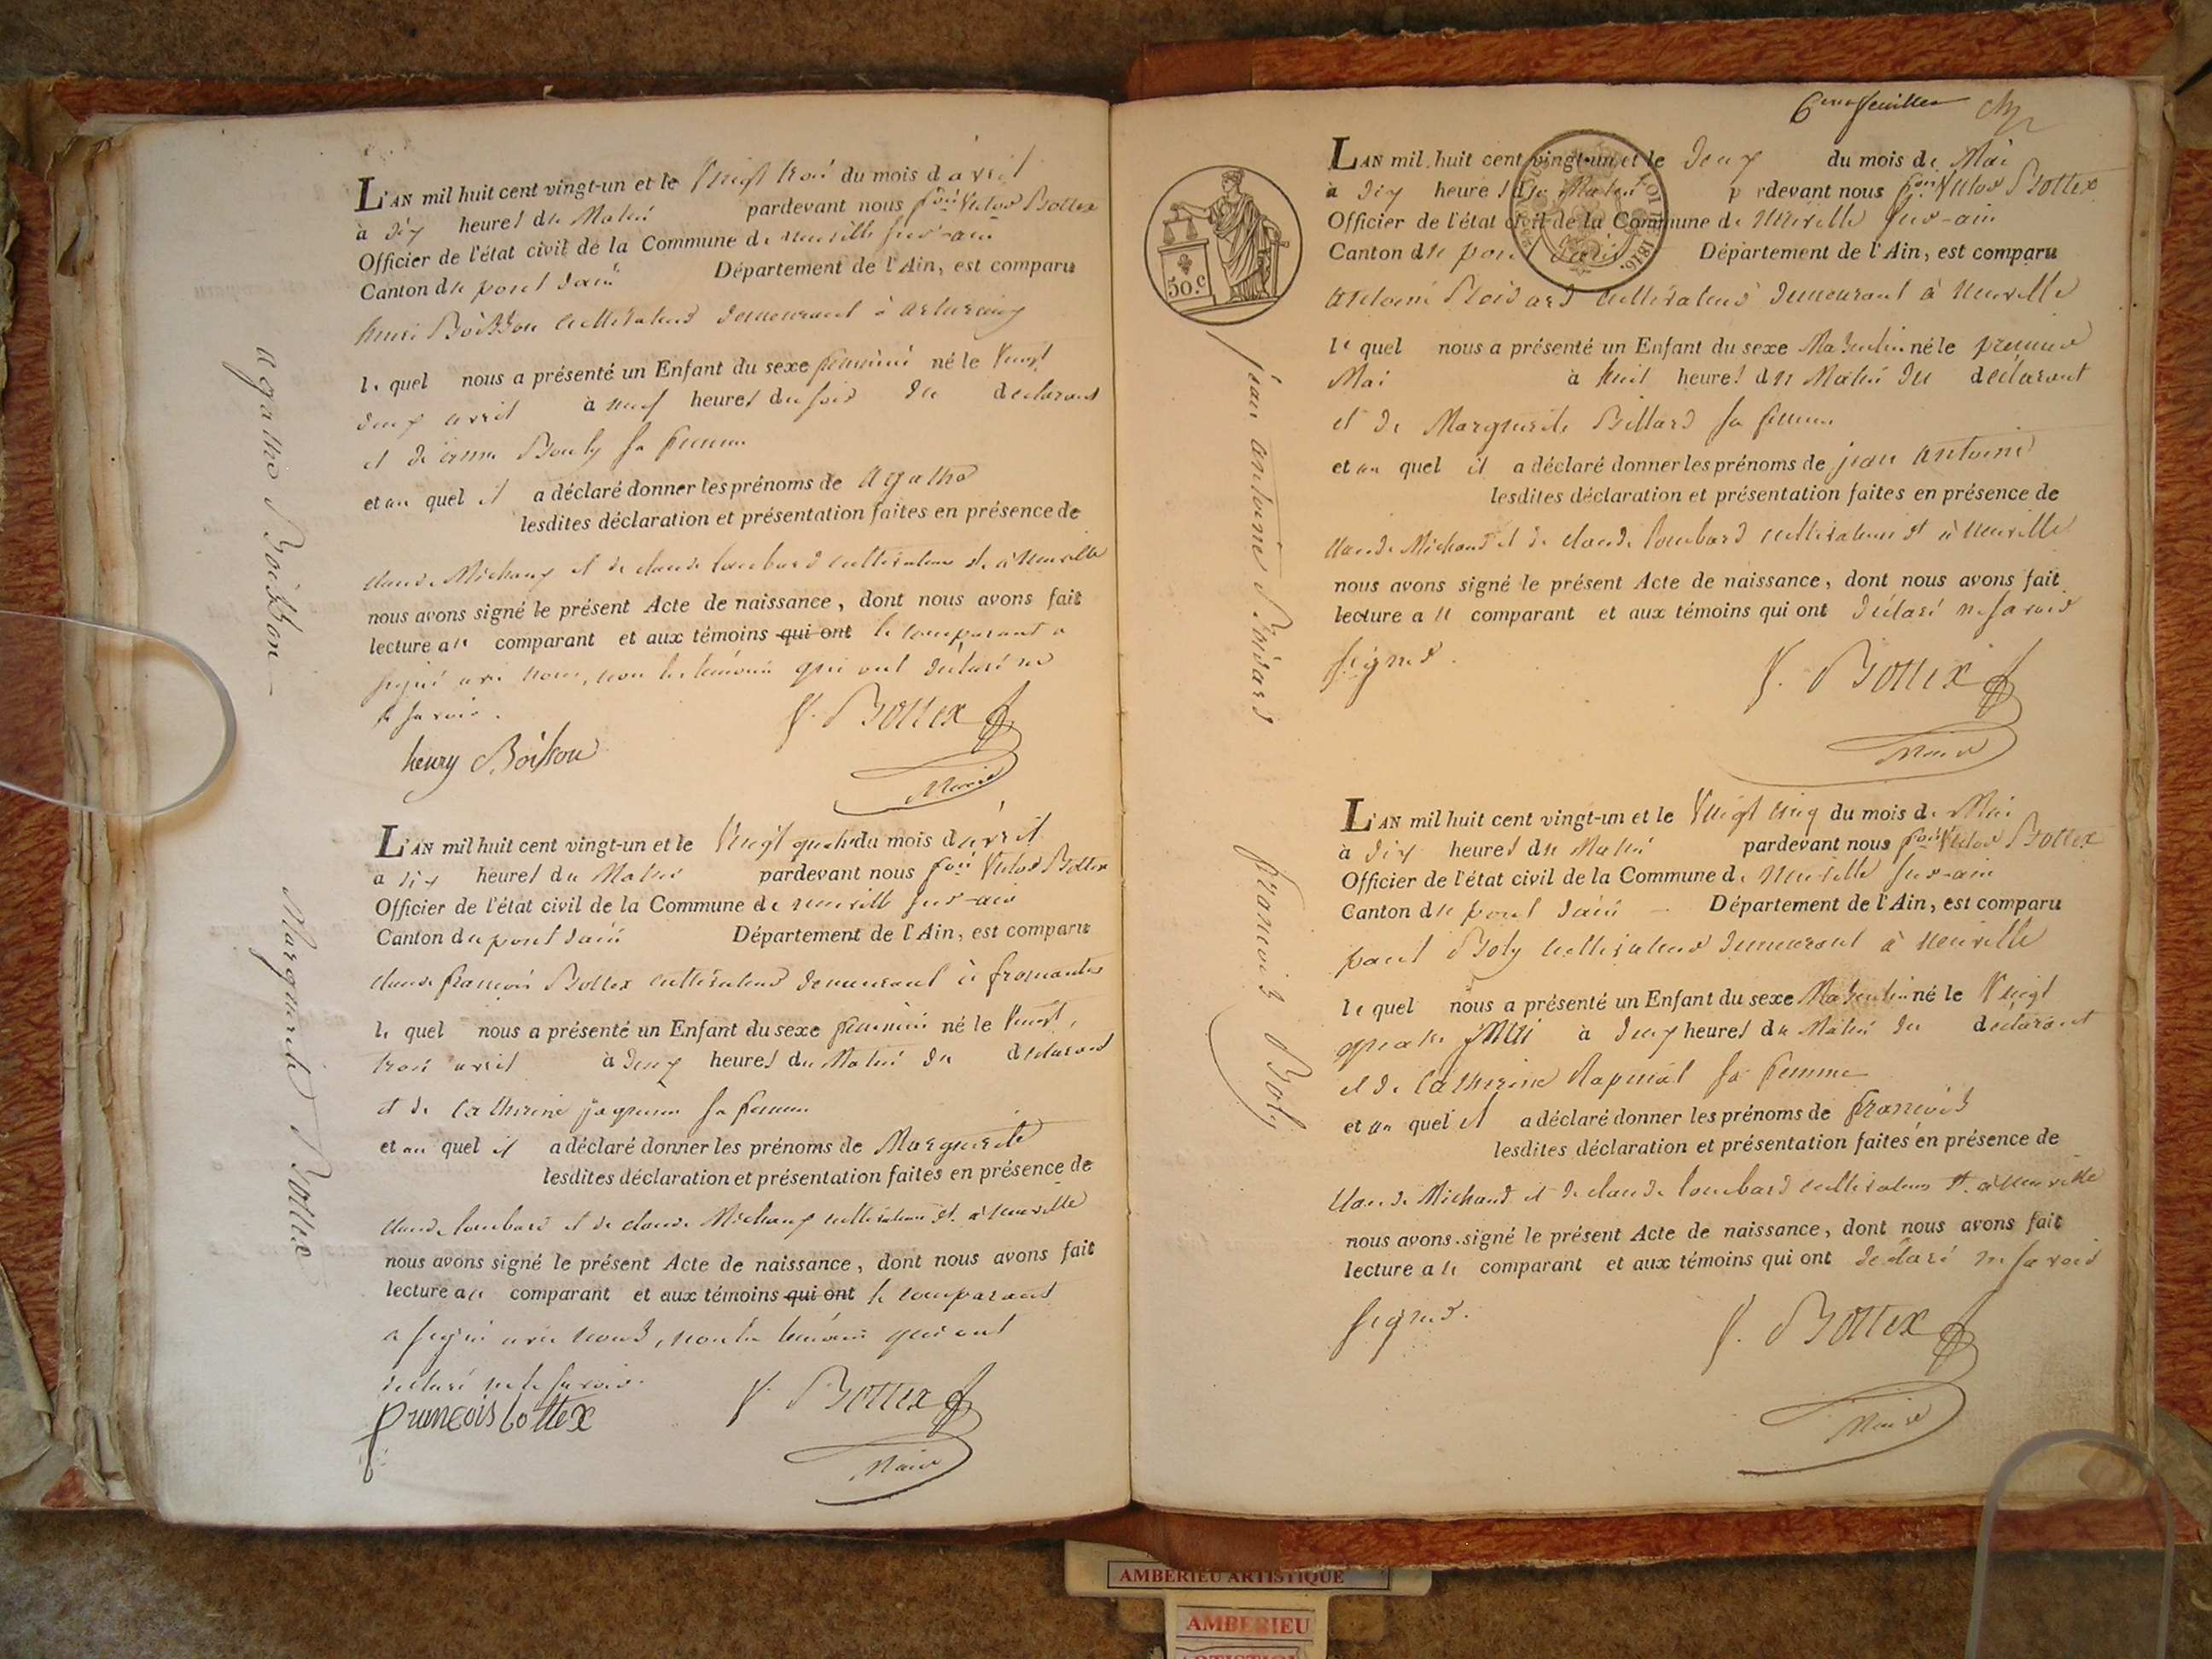 L'AN mil huit cent vingt-un et le Vingt trois du mois d'avril
à dix heures du Matin pardevant nous fois Victor Bottex
Officier de l'état civil de la Commune de neuville sur-ain
Canton du pont dain Département de l'Ain, est comparu
henri Boisson cultivateur demeurant à
le quel nous a présenté un Enfant du sexe feminin né le Vingt
deux avril à neuf heures du soir du declarant
et de anne Bouly sa femme
et au quel il a déclaré donner les prénoms de Agathe
lesdites déclaration et présentation faites en présence de
claude Michaux et de claude lombard cultivateurs dt à Neuville
nous avons signé le présent Acte de naissance, dont nous avons fait
lecture au comparant et aux témoins qui ont le comparant a
signé avec nous, non les témoins qui ont déclaré ne
le savoir.
V. Bottex
henry Boisson
Maire
agathe Boisson
L'AN mil huit cent vingt-un et le Vingt quatre du mois d'avril
à dix heures du Matin pardevant nous fois Victor Bottex
Officier de l'état civil de la Commune de neuville sur-ain
Canton du pont dain Département de l'Ain, est comparu
claude françois Bottex cultivateur demeurant à fromentes
le quel nous a présenté un Enfant du sexe feminin né le Vingt
trois avril à deux heures du Matin du declarant
et de Catherine jaquemin sa femme
et au quel il a déclaré donner les prénoms de Marguerite
lesdites déclaration et présentation faites en présence de
claude lombard et de claude Michaux cultivateurs dt à Neuville
nous avons signé le présent Acte de naissance, dont nous avons fait
lecture au comparant et aux témoins qui ont le comparant
a signé avec nous, non les témoins qui ont
déclaré ne le savoir.
françois bottex
V. Bottex
Maire
Marguerite Bottex
6eme feuille
L'AN mil huit cent vingt-un et le deux du mois de Mai
à dix heures du Matin pardevant nous fois Victor Bottex
Officier de l'état civil de la Commune de Neuville sur-ain
Canton du pont dain Département de l'Ain, est comparu
50.c
LOI DE 1816.
antoine cultivateur demeurant à Neuville
le quel nous a présenté un Enfant du sexe Masculin né le premier
Mai à huit heures du Matin du declarant
et de Marguerite Billard sa femme
et au quel il a déclaré donner les prénoms de jean antoine
lesdites déclaration et présentation faites en présence de
claude Michaud et de claude lombard cultivateurs dt à Neuville
nous avons signé le présent Acte de naissance, dont nous avons fait
lecture au comparant et aux témoins qui ont déclaré ne savoir
signer.
V. Bottex
Maire
jean antoine
L'AN mil huit cent vingt-un et le Vingt cinq du mois de Mai
à dix heures du Matin pardevant nous fois Victor Bottex
Officier de l'état civil de la Commune de Neuville sur-ain
Canton du pont dain Département de l'Ain, est comparu
paul Boly cultivateur demeurant à Neuville
le quel nous a présenté un Enfant du sexe Masculin né le Vingt
quatre Mai à deux heures du Matin du declarant
et de Catherine Rapuiat sa femme
et au quel il a déclaré donner les prénoms de françois
lesdites déclaration et présentation faites en présence de
claude Michaud et de claude lombard cultivateurs dt à Neuville
nous avons signé le présent Acte de naissance, dont nous avons fait
lecture au comparant et aux témoins qui ont declaré ne savoir
signer.
V. Bottex
Maire
francois Boly
AMBERIEU ARTISTIQUE
AMBERIEU